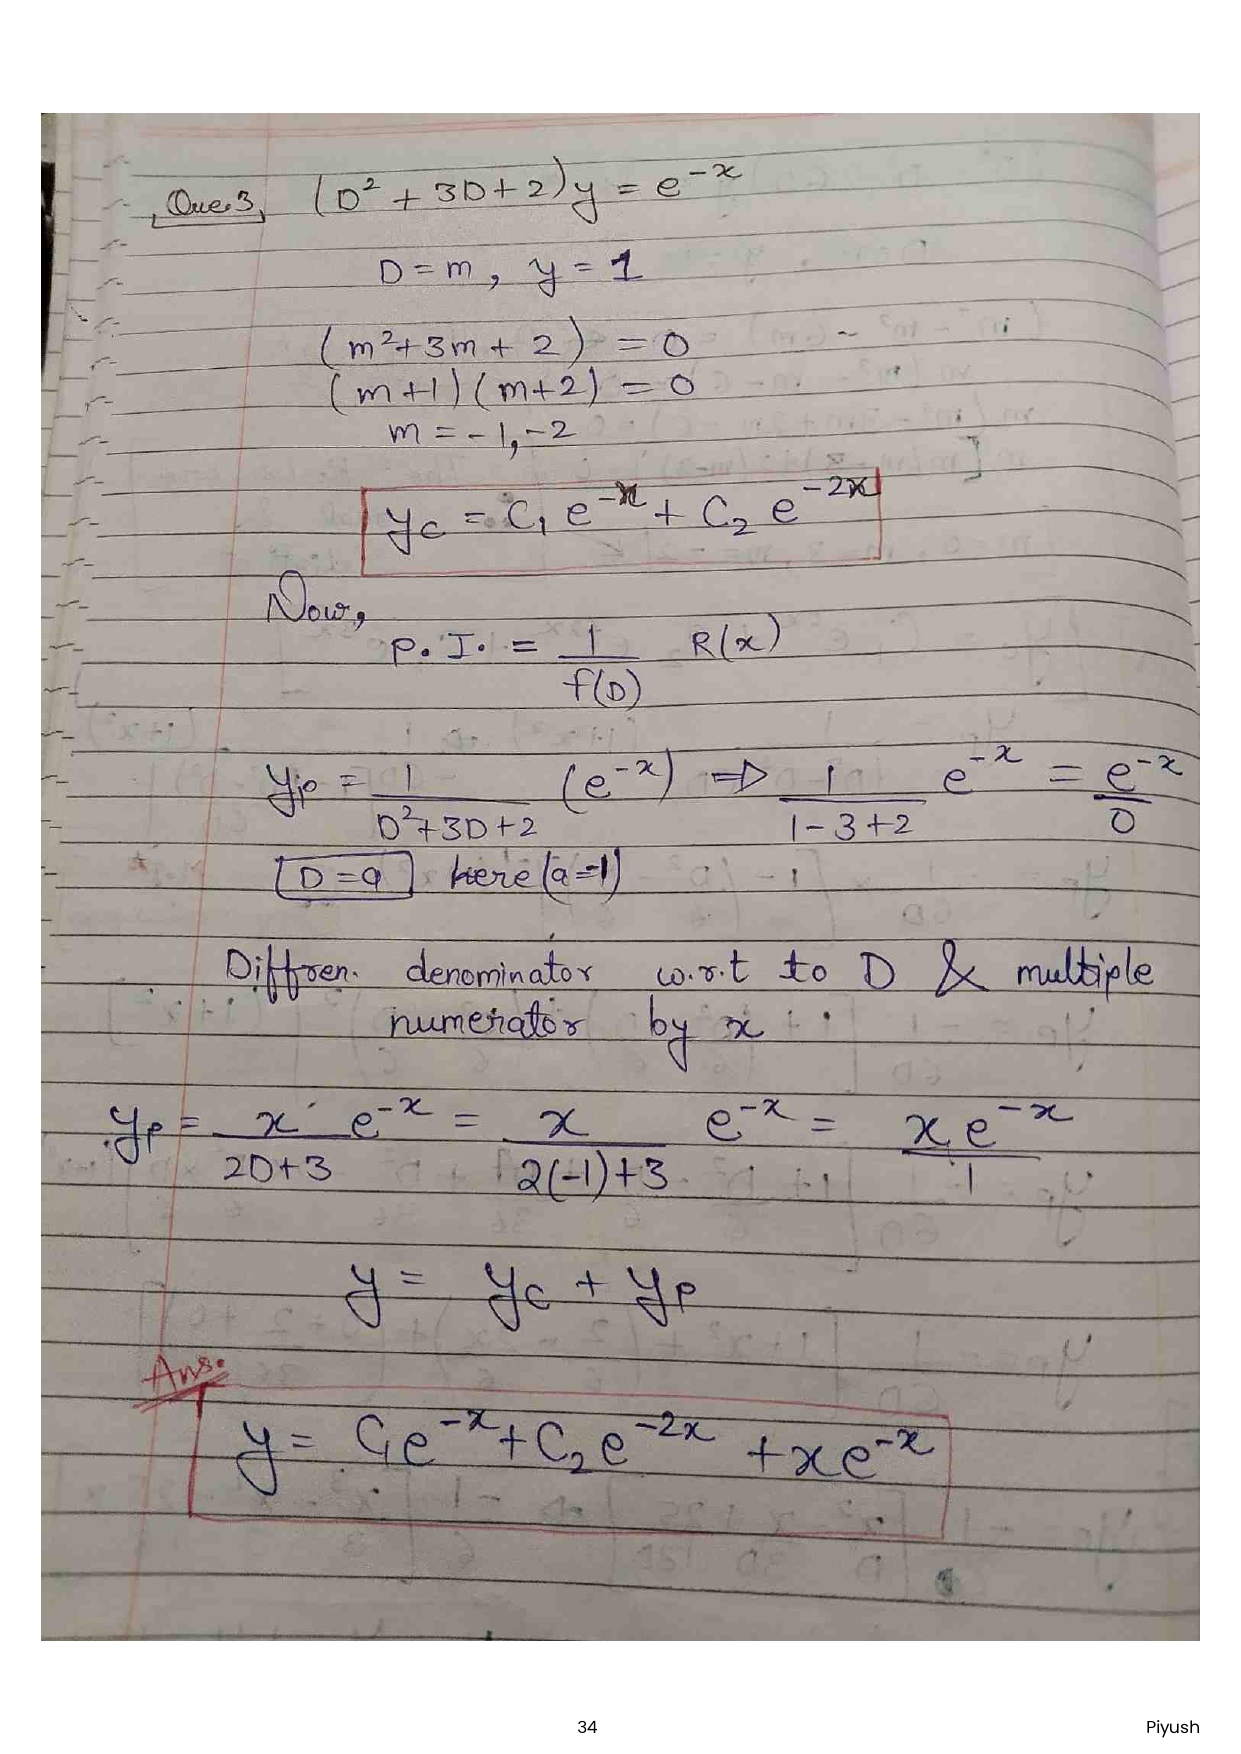 Que.3, (D² + 3D + 2)y = e⁻ˣ
D = m, y = 1
(m² + 3m + 2) = 0
(m+1)(m+2) = 0
m = -1, -2
y_c = C₁ e⁻ˣ + C₂ e⁻²ˣ
Now,
P.I. = 1/f(D) R(x)
y_p = 1/(D²+3D+2) (e⁻ˣ) ⇒ 1/(1-3+2) e⁻ˣ = e⁻ˣ/0
D = a here (a=-1)
Diffren. denominator w.r.t to D & multiple
numerator by x
y_p = x/(2D+3) e⁻ˣ = x/(2(-1)+3) e⁻ˣ = x e⁻ˣ/1
y = y_c + y_p
Ans.
y = C₁e⁻ˣ + C₂e⁻²ˣ + xe⁻ˣ
34 Piyush